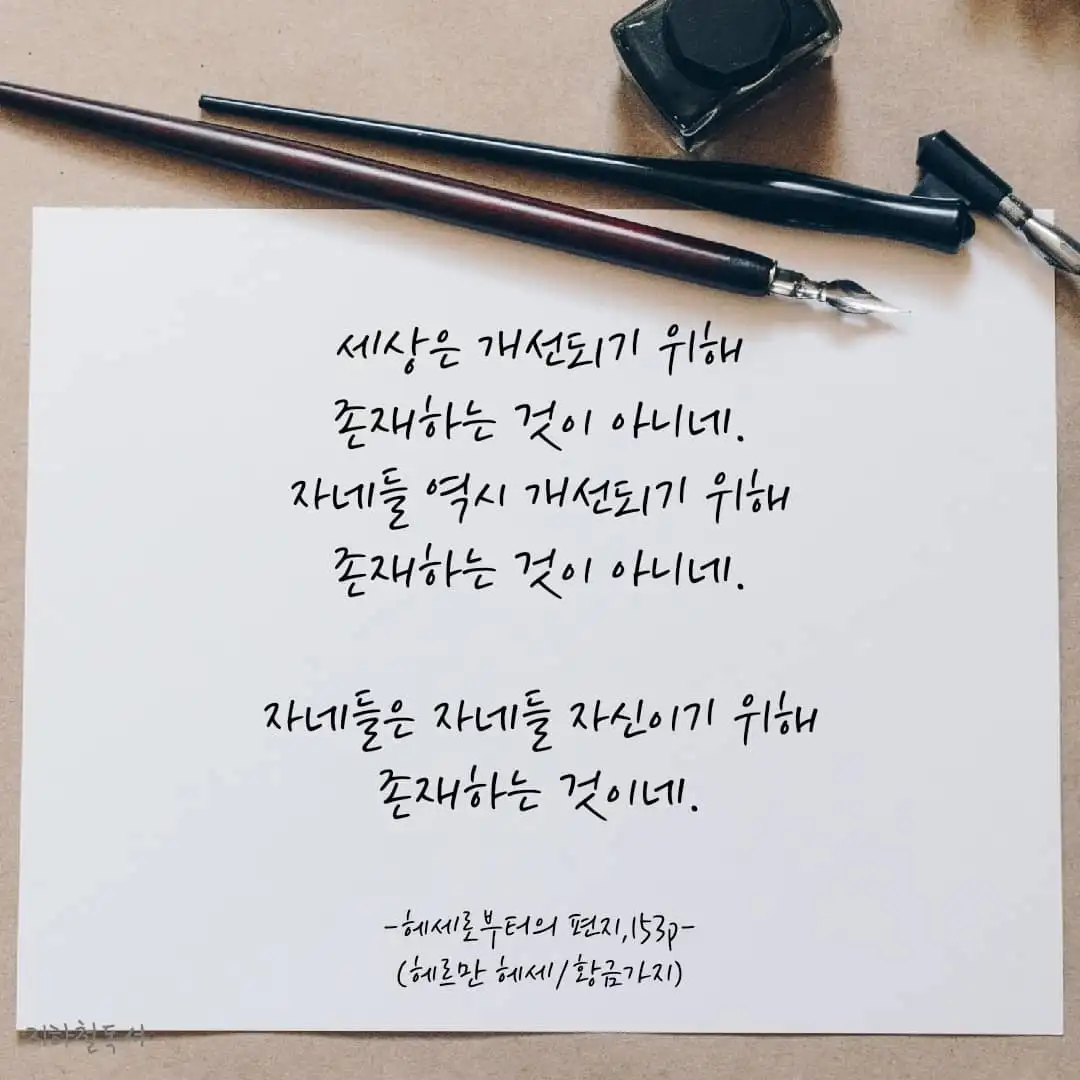 세상은 개선되기 위해
존재하는 것이 아니네.
자네들 역시 개선되기 위해
존재하는 것이 아니네.
자네들은 자네들 자신이기 위해
존재하는 것이네.
-헤세로부터의 편지,153p-
(헤르만 헤세/황금가지)
지하철독서